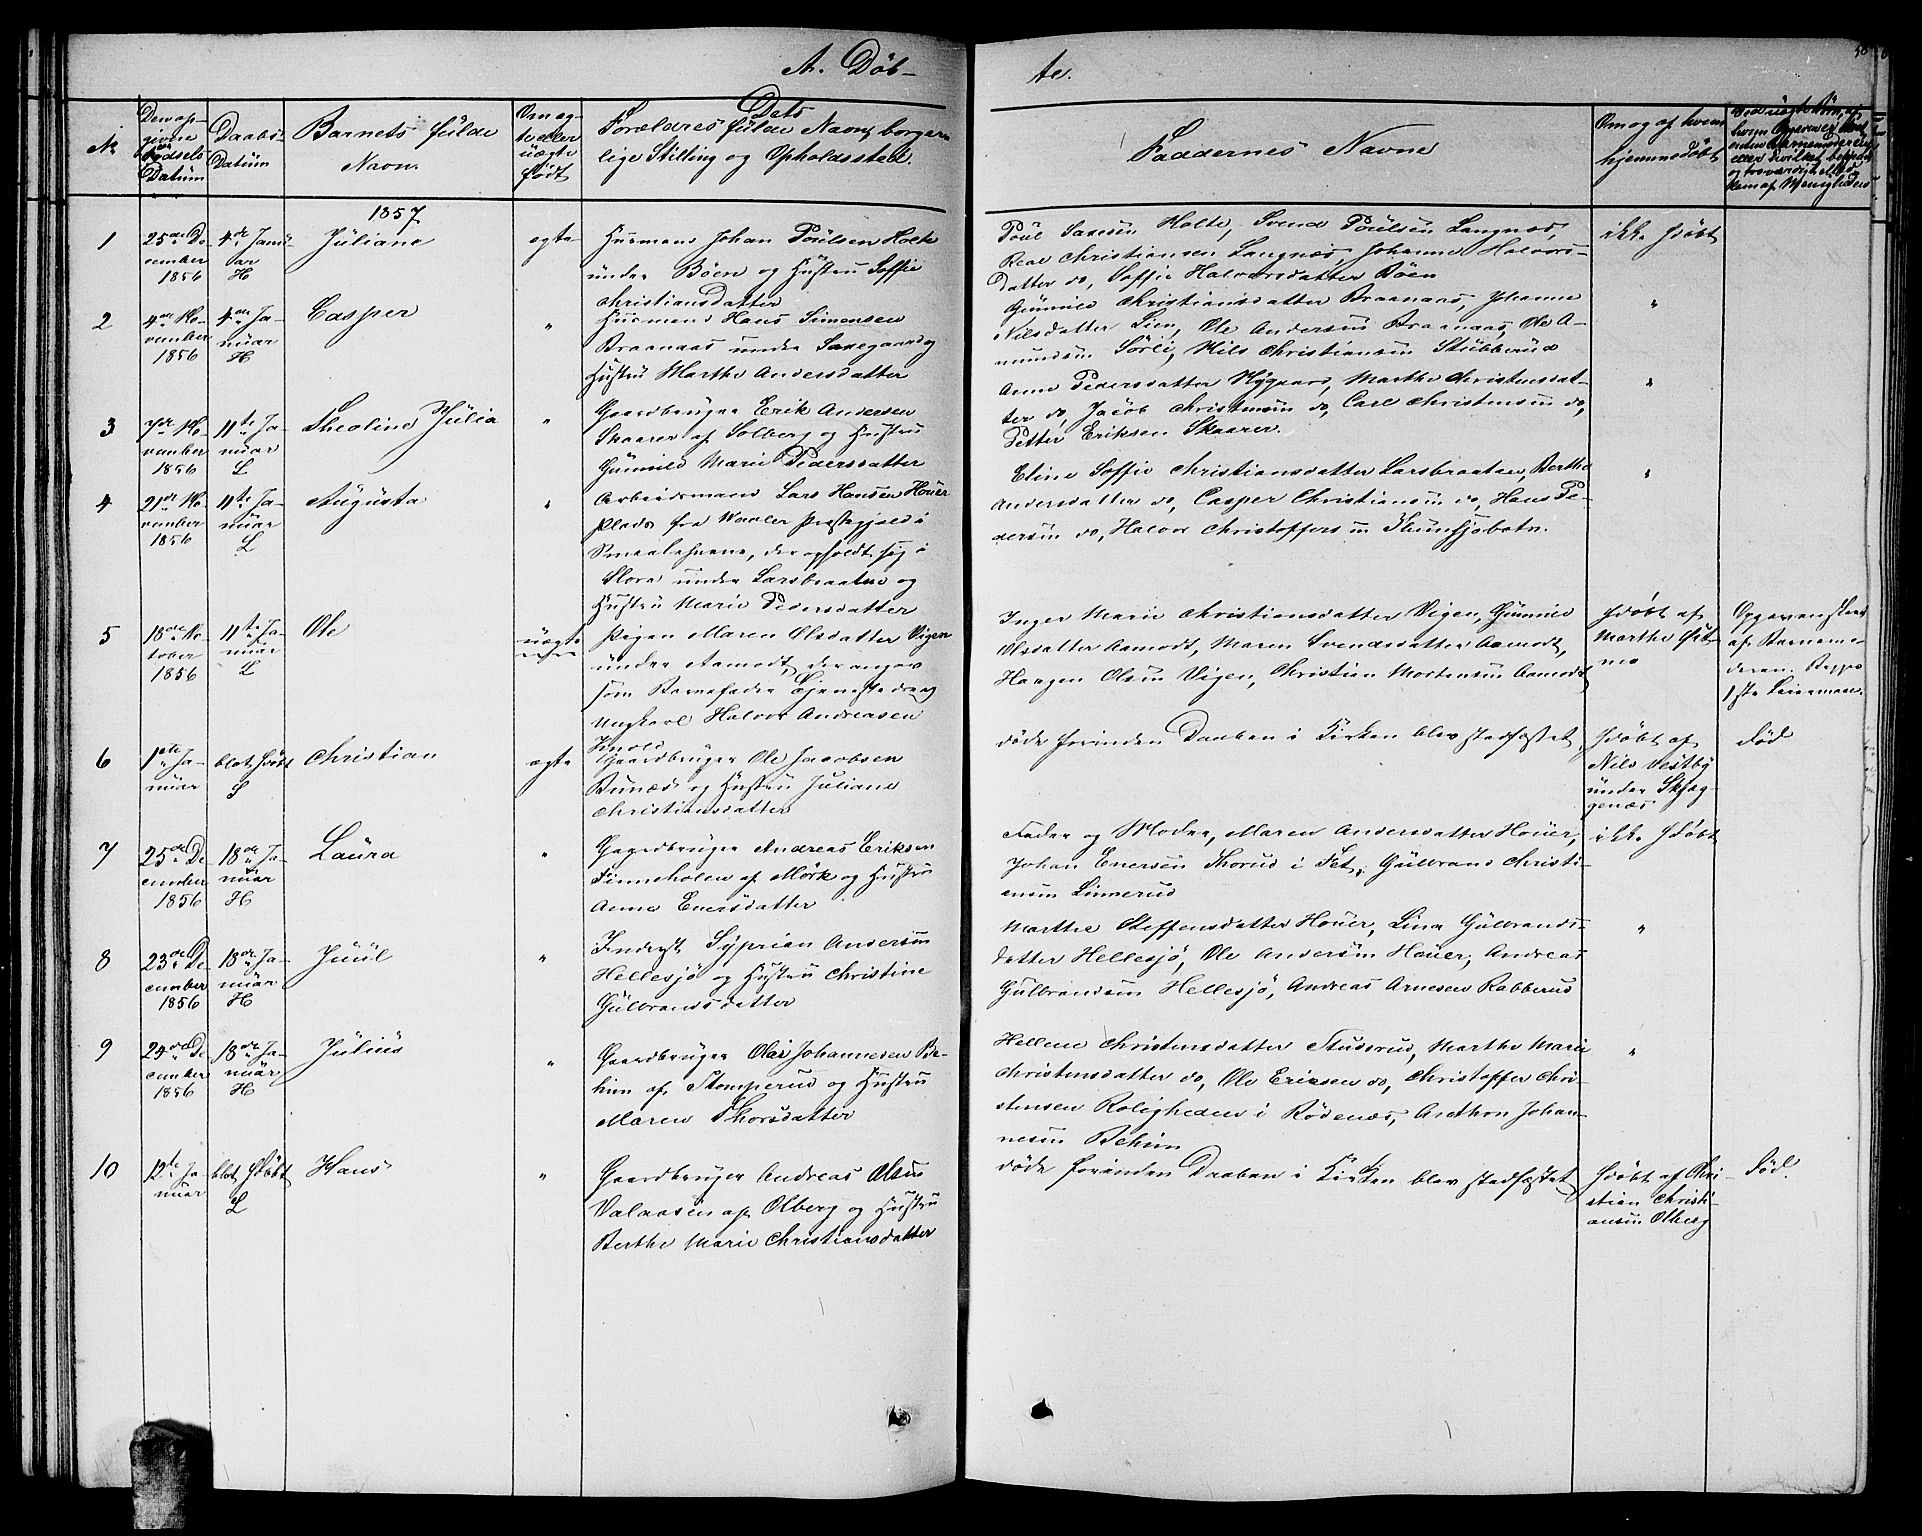 A. Döb-
te.
58
№
Den op-
givne
Födsels
Datum
Daabs-
Datüm
Barnets fülde
Navn.
Om æg-
te eller
üægte
födt
Dets
Forældres fülde Navn, borger-
lige Stilling og Opholdssted.
Faddernes Navne
Om og af hvem
hjemmedöbt
1857
1
25de De-
cember
1856
4de Janü-
ar
H
Jüliane
ægte
Husmand Johan Poülsen Holte
ünder Böen og Hüstrü Soffie
Christiansdatter
Poül Larsen Holte, Svend Poülsen Langnæs,
Real Christiansen Langnæs, Johanne Halvors-
datter do, Soffie Halvorsdatter Böen
ikke hdöbt
2
4de No-
vember
1856
4de Ja-
nüar
H
Casper
"
Husmand Hans Simensen
Braanaas ünder Saxegaard og
Hüstrü Marthe Andersdatter
Günnild Christiansdatter Braanaas, Johanne
Nilsdatter Lien, Ole Andersen Braanaas, Ole A-
mundsen Sörli, Nils Christiansen Stübberud
"
3
7de No-
vember
1856
11te Ja-
nüar
L
Theoline Jülia
"
Gaardbrüger Erik Andersen
Skaarer af Solberg og Hüstrü
Günnild Marie Pedersdatter
Anne Pedersdatter Nygaard, Marthe Christensdat-
ter do, Jacob Christensen do, Carl Christensen do,
Petter Eriksen Skaarer.
"
4
21de No-
vember
1856
11te Ja-
nüar
L
Aügüsta
"
Arbeidsmand Lars Hansen Houer
Plads fra Waaler Præstegjeld i
Smaalehnene, der opholdt sig i
Flora ünder Larsbraaten og
Hüstrü Marie Pedersdatter
Eline Soffie Christiansdatter Larsbraaten, Berthe
Andersdatter do, Casper Christiansen do, Hans Pe-
dersen do, Halvor Christoffersen
"
5
18de Oc-
tober
1856
11te Ja-
nüar
L
Ole
üægte
Pigen Maren Olsdatter Vigen
ünder Aamodt, der angav
som Barnefader Tjenestedreng
Ungkarl Halvor Andreasen
Inger Marie Christiansdatter Vigen, Günnild
Olsdatter Aamodt, Maren Svendsdatter Aamodt,
Haagen Olsen Vigen, Christian Mortensen Aamodt
hdöbt af
Marthe
Opgaven skeed
af Barnemo-
deren. Begges
1ste Leiermaal.
6
1ste Ja-
nüar
blot hdöbt
L
Christian
ægte
Gaardbrüger Ole Jacobsen
Bunæs og Hüstrü Juliane
Christiansdatter
döde forinden Daaben i Kirken blev stadfæstet
hdöbt af
Nils Vestby
ünder Skjæg-
genæs
död
7
25de De-
cember
1856
18de Ja-
nüar
H
Laüra
"
Gaardbrüger Andreas Eriksen
Finneholen af Mörk og Hüstrü
Anne Enersdatter
Fader og Moder, Maren Andersdatter Houer,
Johan Enersen Thorud i Fet, Gülbrand Christi-
ansen Linnerud
ikke hdöbt
8
23de De-
cember
1856
18de Ja-
nüar
H
Jüül
"
Inderst Syprian Andersen
Hellesjö og Hüstrü Christine
Gülbrandsdatter
Marthe Steffensdatter Houer, Lina Gülbrands-
datter Hellesjö, Ole Andersen Houer, Andreas
Gülbrandsen Hellesjö, Andreas Arnesen Rabberud
"
9
24de De-
cember
1856
18de Ja-
nüar
H
Jüliüs
"
Gaardbrüger Olai Johannesen Be-
him af Stomperud og Hüstrü
Maren Thorsdatter
Hellene Christensdatter Studsrud, Marthe Marie
Christensdatter do, Ole Eriksen do, Christoffer Chri-
stensen Roligheden i Rödenæs, Arethon Johan-
nesen Behim
"
10
12te Ja-
nüar
blot hdöbt
L
Hans
"
Gaardbrüger Andreas Olsen
Valaasen af Olberg og Hüstrü
Berthe Marie Christiansdatter
döde forinden Daaben i Kirken blev stadfæstet
hdöbt af Chri-
stian Christi-
ansen Olberg
död.